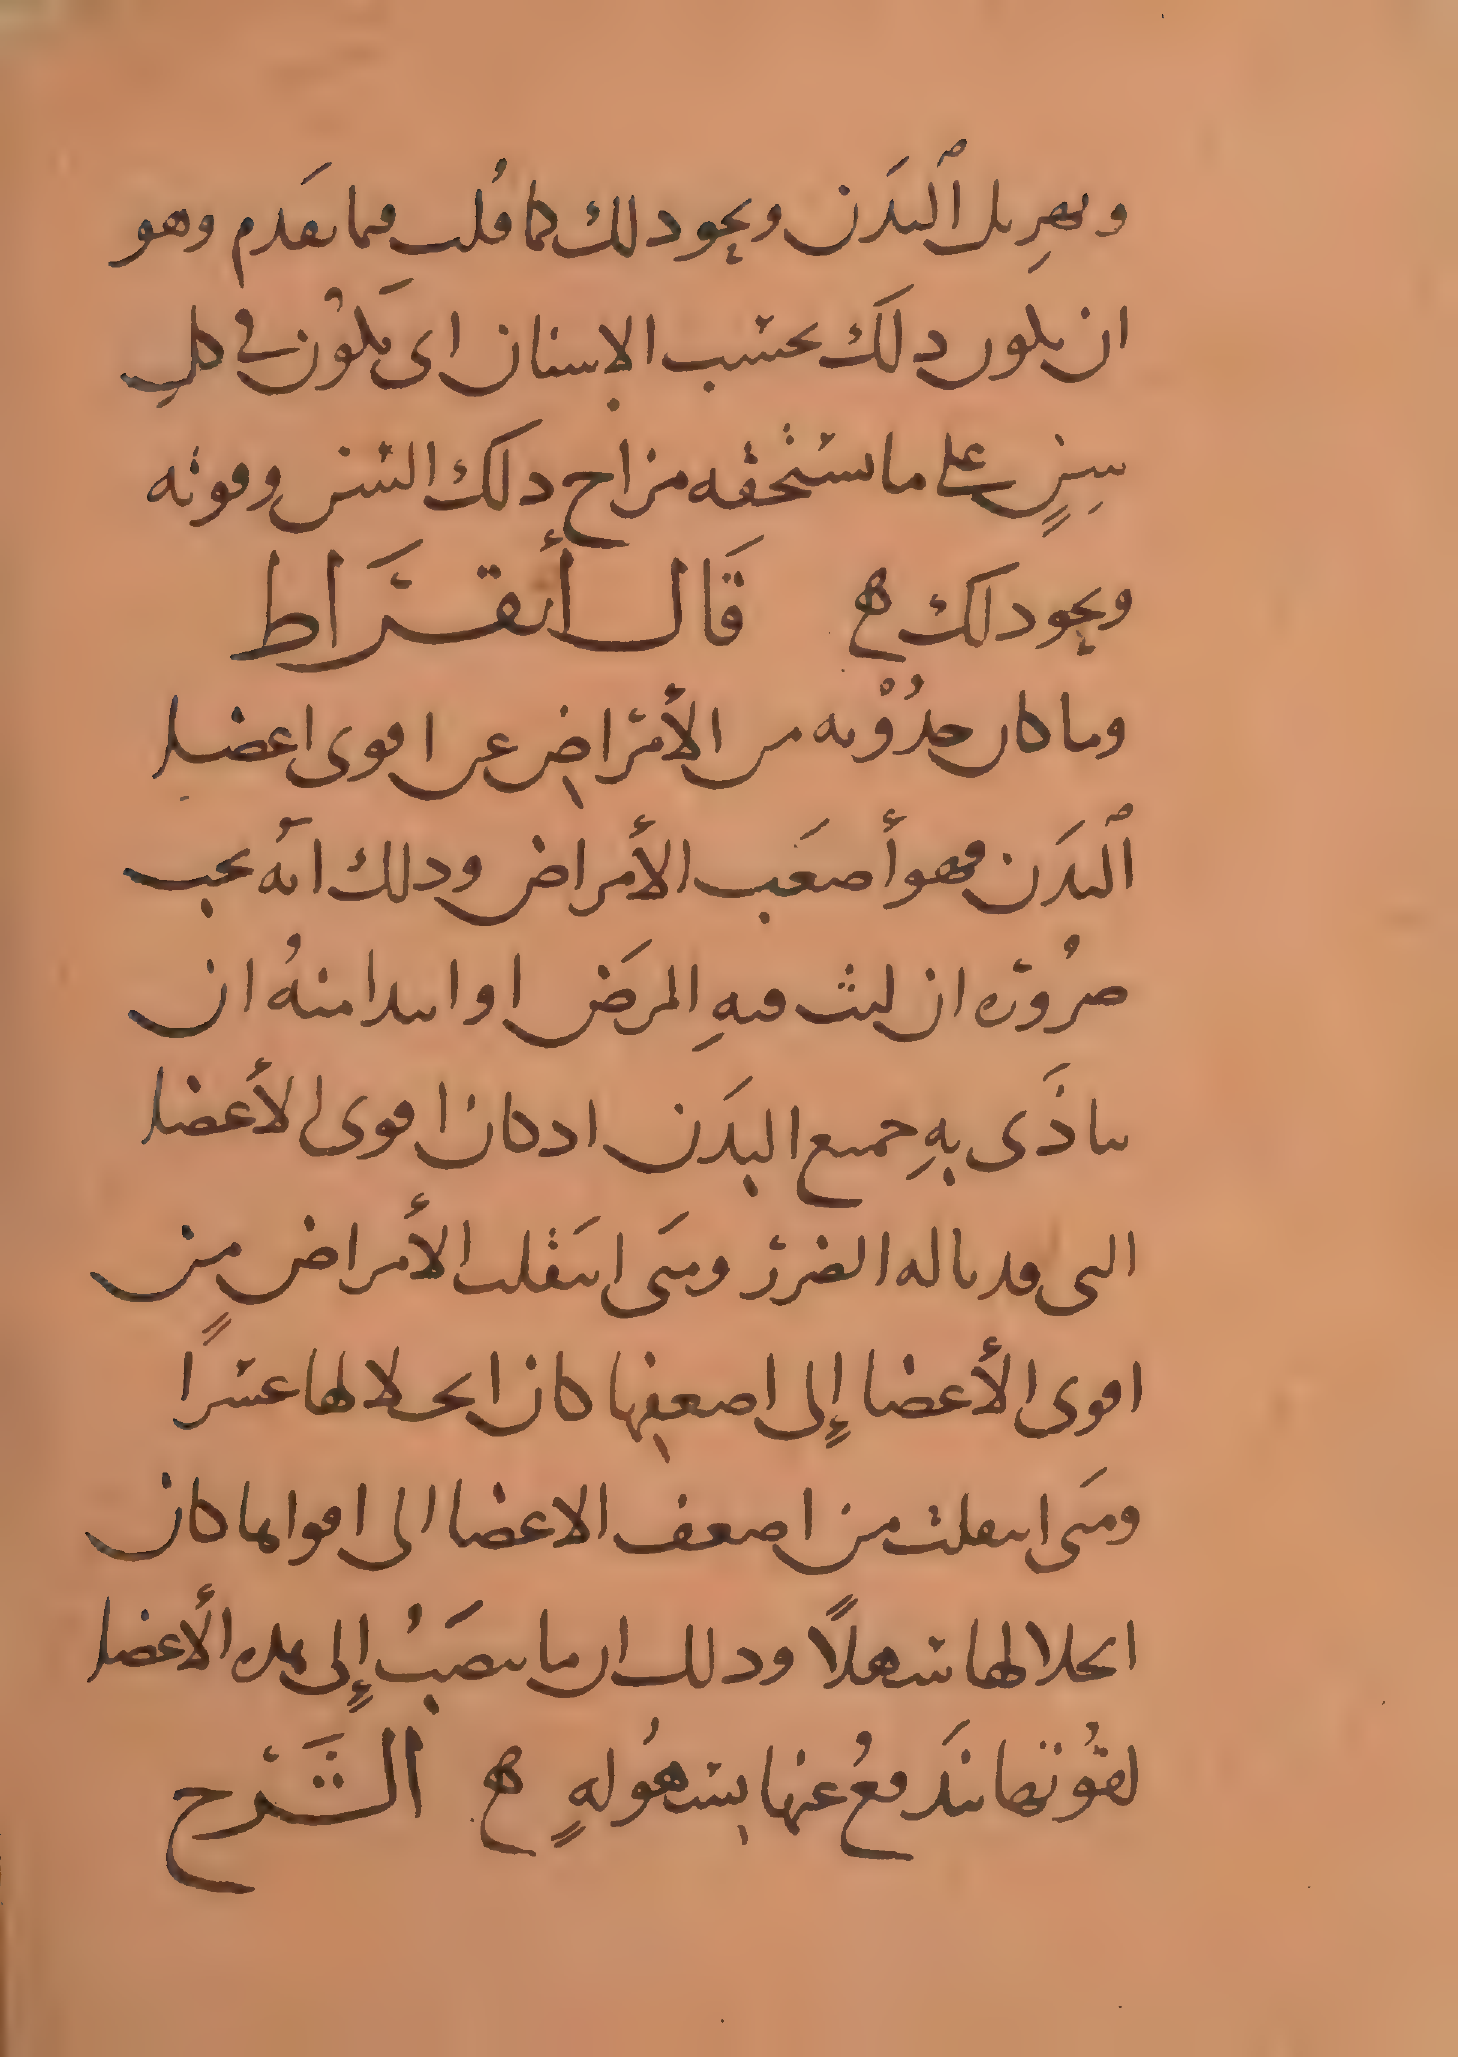 وتهزيل البَدَن ونحو ذلك كما قُلت فيما تقَدم وهو
ان يكون ذلكَ بحسب الاسنان اى يَكوْن في كلِ
سِنٍ على ما يستحقه مزاج ذلكَ السن وقوته
ونحو ذلكَ ھ قَال أبقرَاط
وما كان حدُوْثه من الأمراض عن اقوى اعضا
البَدَن فهو أصعَب الأمراض وذلك انَه يجب
ضرُورة ان لبث فيهِ المرَض او ابتدا منهُ ان
يتاذَى بهِ جميع البدَن اذ كان اقوى الأعضا
التى قد ناله الضرر ومتَى انتَقلت الأمراضٍ من
اقوى الأعضا إلى اضعفها كان انحلالها عسرًا
ومتَى انتقلت من اضعف الاعضا الى اقواها كان
انحلالها سهلًا وذلك ان ما ينصَبُ إلى هذه الأعضا
لقوُتها يندَفعُ عنها بسهُولهٍ ھ الشَرح